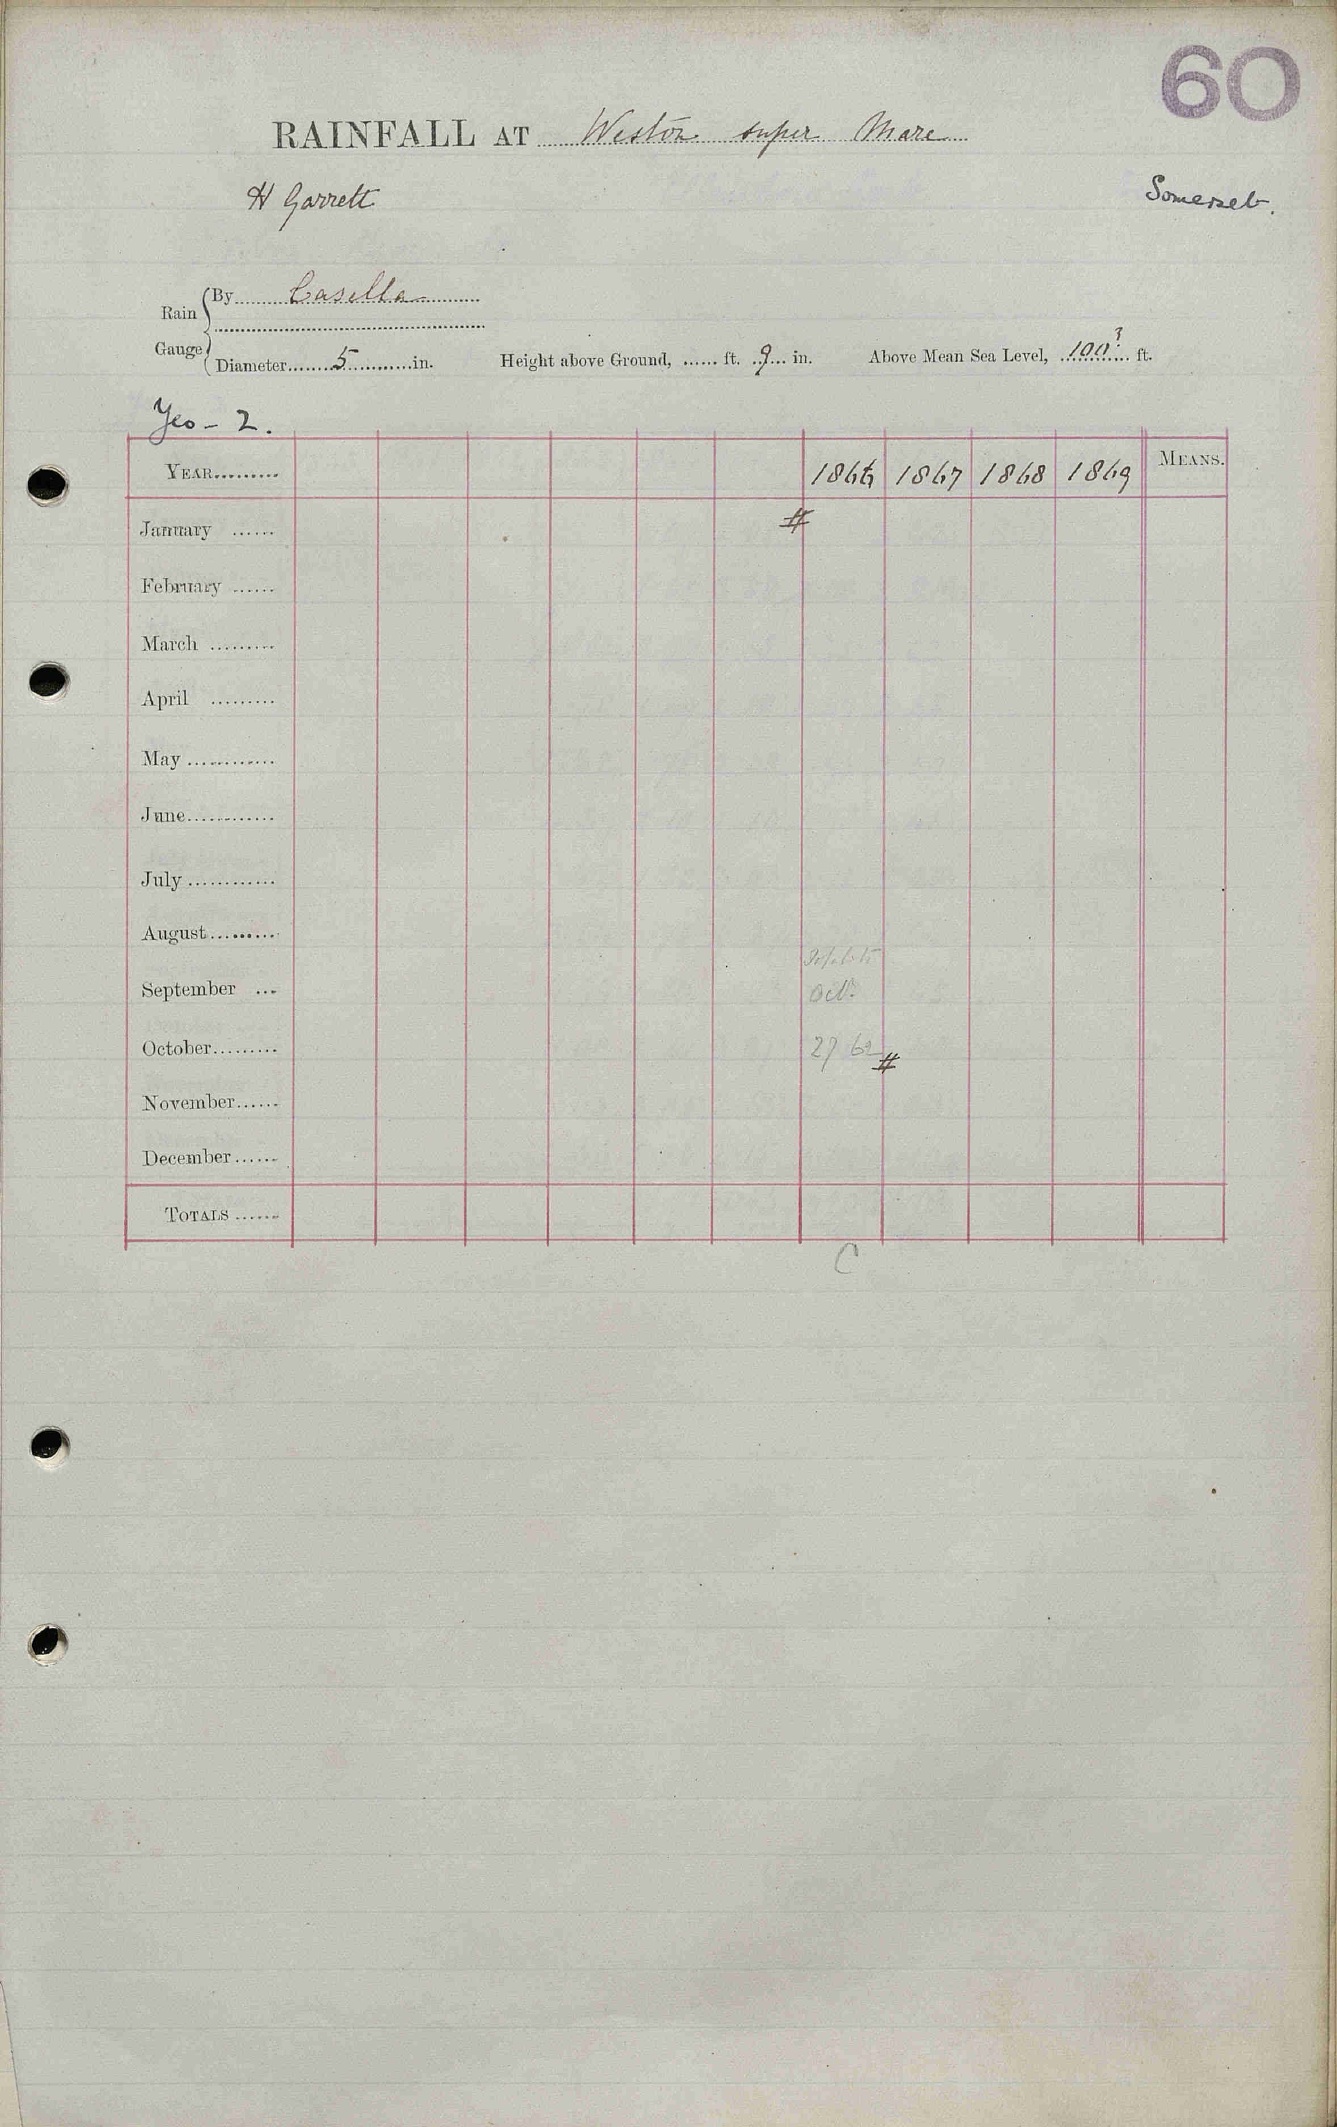 60
RAINFALL AT Weston super Mare
H Garrett
Somerset.
Rain Gauge
By Casella
Diameter 5 in. Height above Ground, ft. 9 in. Above Mean Sea Level, 100? ft.
Yeo - 2.
YEAR 1866 1867 1868 1869 MEANS.
January #
February
March
April
May
June
July
August
September Oct.
October 27 62 #
November
December
TOTALS
C